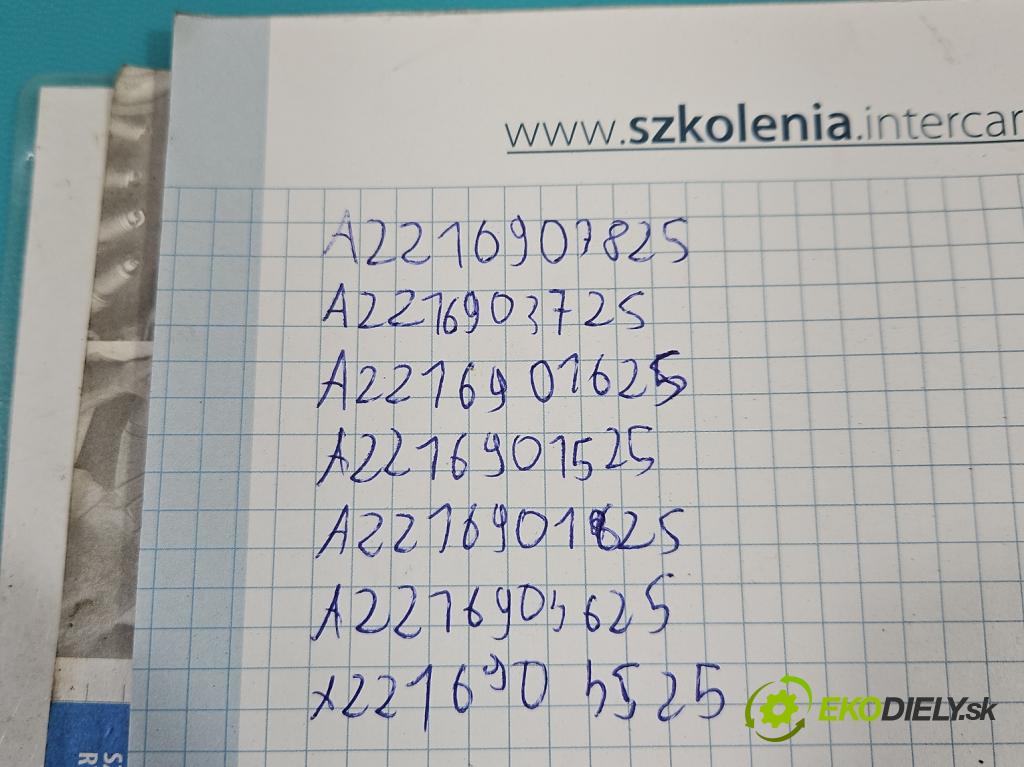 www.szkolenia.intercar
A2216907825
A2216903725
A2216901625
A2216901525
A2216901625
A2216903625
A2216903525
EKODIELY.sk